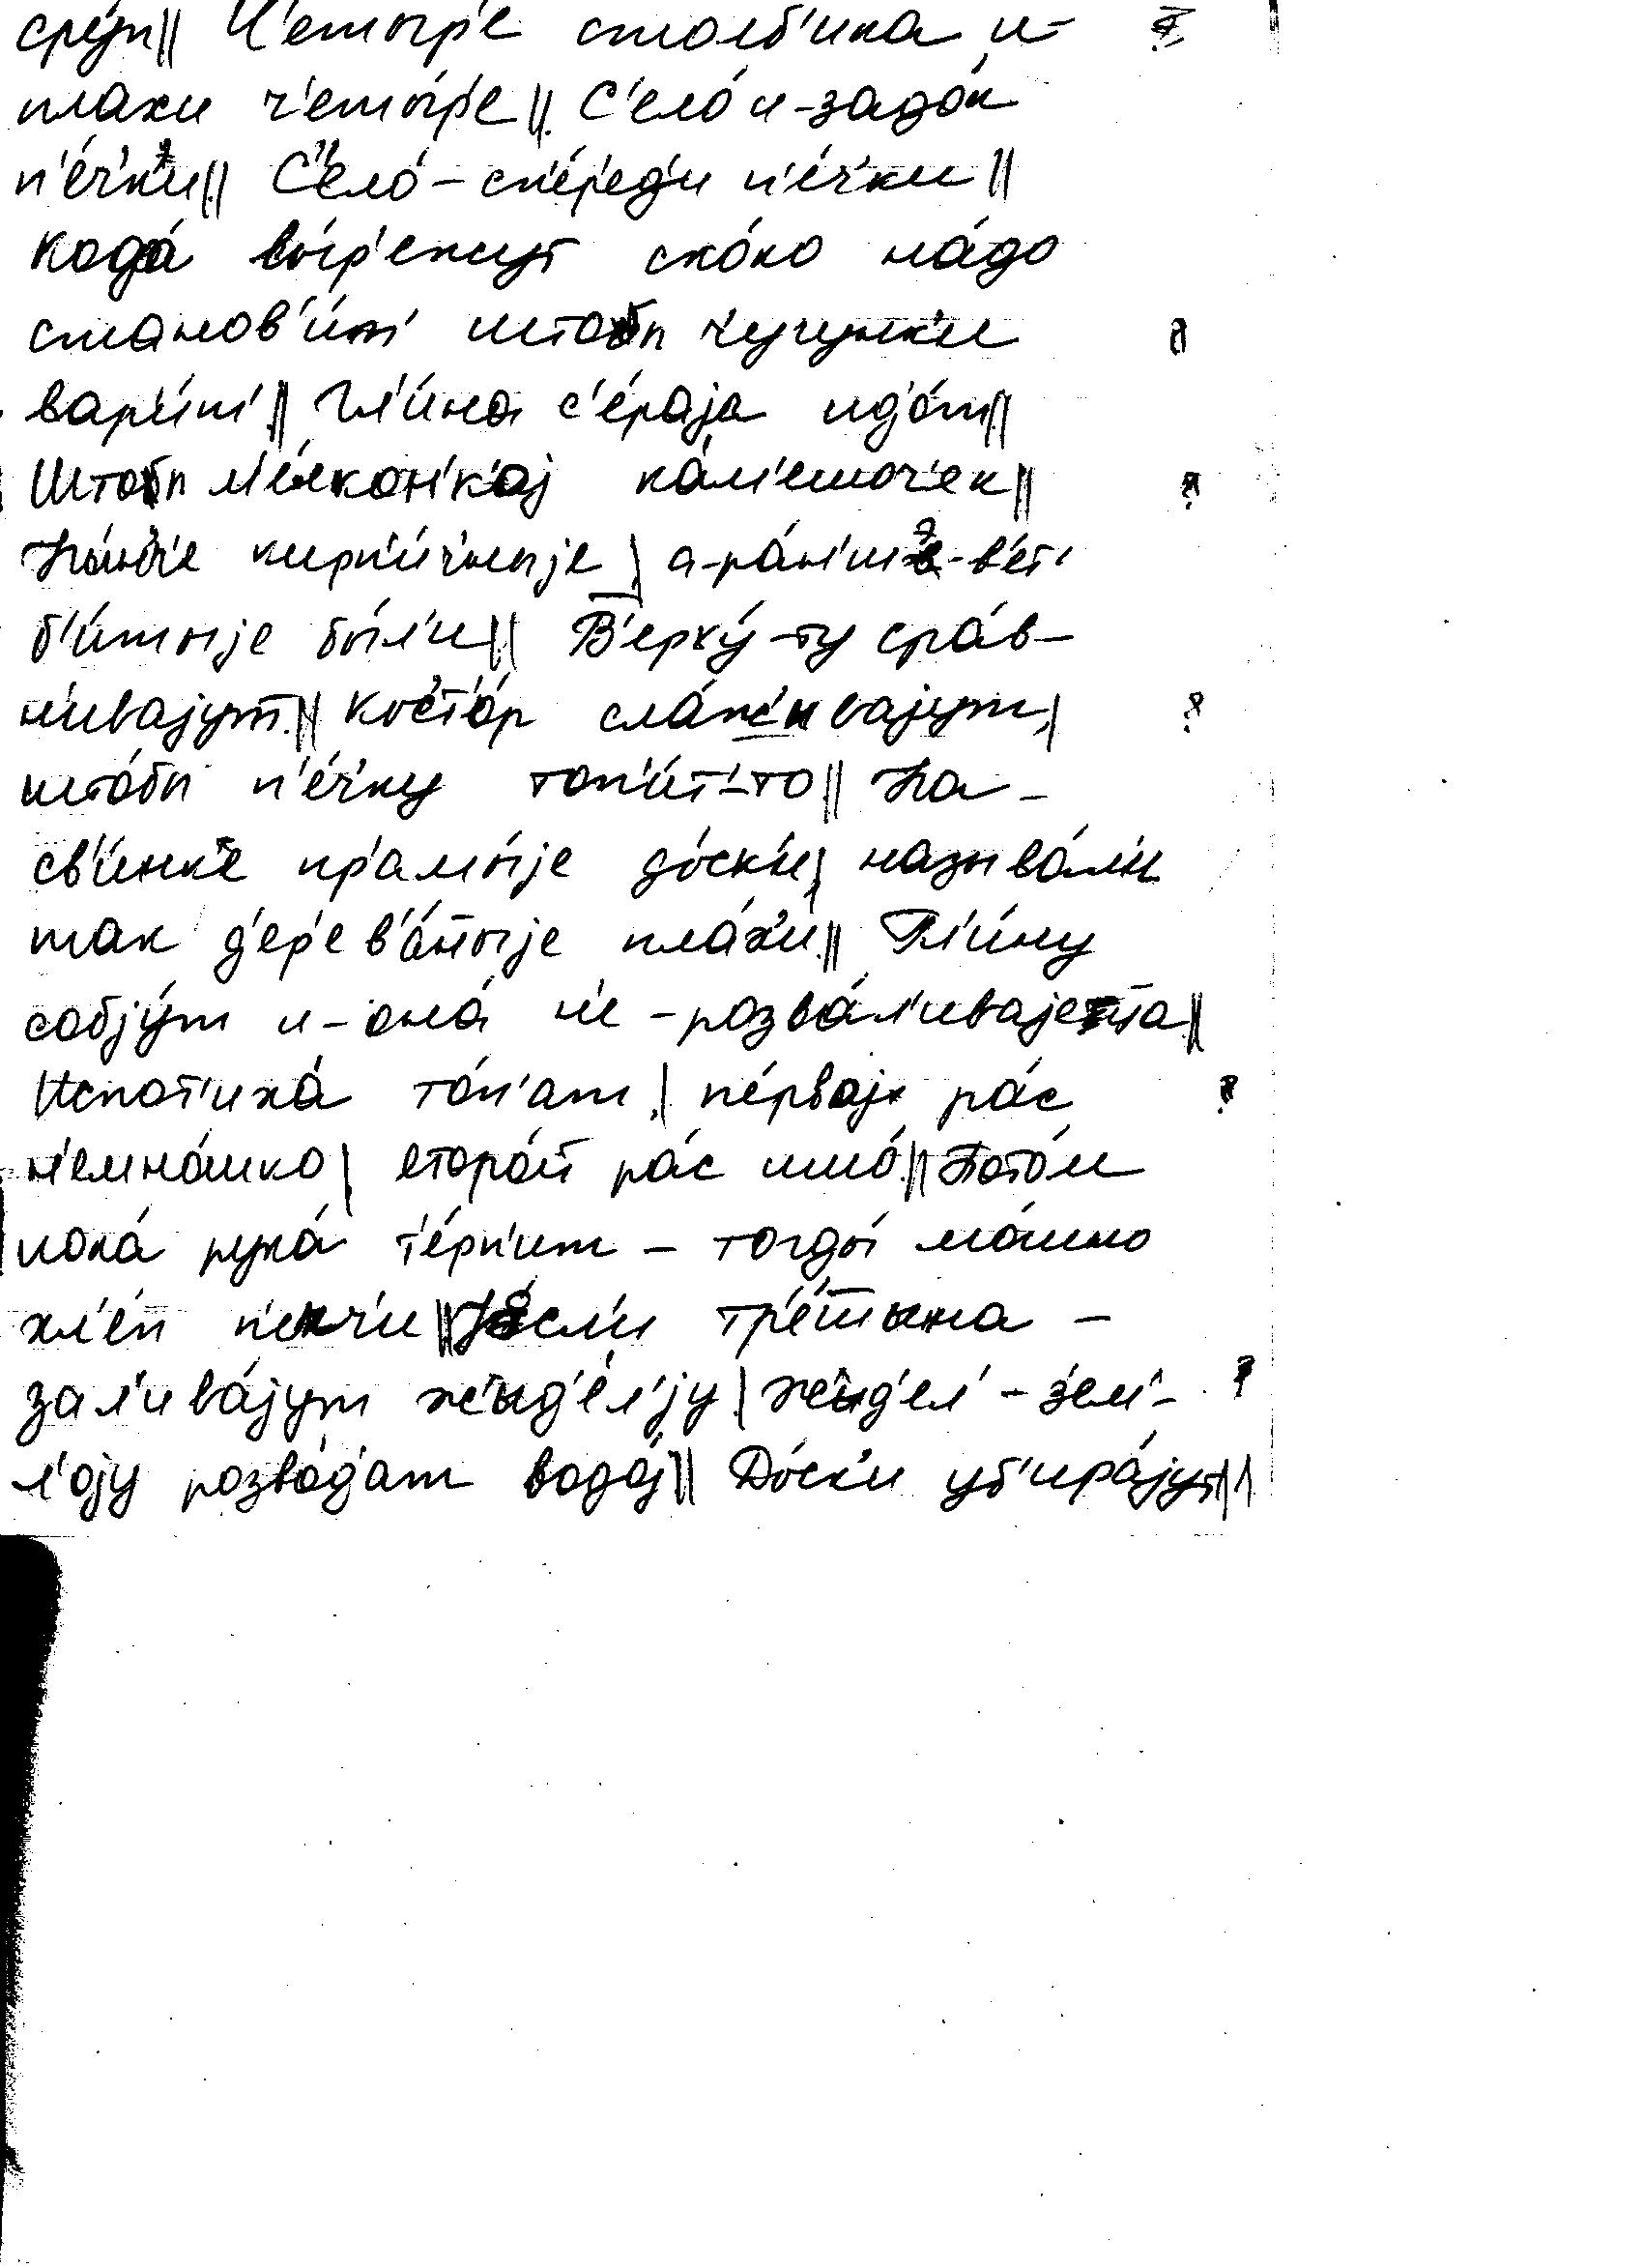 сру́п|| Ч'еты́р'е столб'ика и-
плахи ч'еты́р'е|| С'ело́ и-задо́к
п'е́ч'к'и|| С'ело́ - сп'е́р'ед'и п'е́ч'ки||
Када́ вы́р'ежут ско́ко на́до
станов'и́т' штобы чугунк'и
вар'и́т'|| Гл'и́на с'е́раја ид'о́т||
Штобы м'е́лкон'к'ај ка́м'ешоч'ек||
Ны́н'ч'е кирп'и́ч'ныје | а-ра́н'ше-в'ет'
б'и́тыје бы́л'и|| В'ерху́-ту сра́в-
н'ивајут|| Кост'о́р сла́живајут |
што́бы п'е́ч'ку топ'и́т'-то|| На-
св'и́нк'е пр'амы́је до́ск'и | называ́л'и
так д'ер'ев'а́ныје пла́х'и|| Гл'и́ну
собју́т и-она́ н'е-розва́л'ивајетца||
Испот'иха́ то́п'ат | пе́рвај ра́с
н'емно́шко | второ́й ра́с ишо́|| Пото́м
пока́ рука́ т'е́рп'ит - тогды́ мо́жно
хл'е́п п'екч'и|| Јесл'и тр'е́щина -
зал'ива́јут жыд'е́л'ју | жыд'ел' - зем'-
л'оју розво́д'ат водо́ј|| До́ск'и уб'ира́јут||